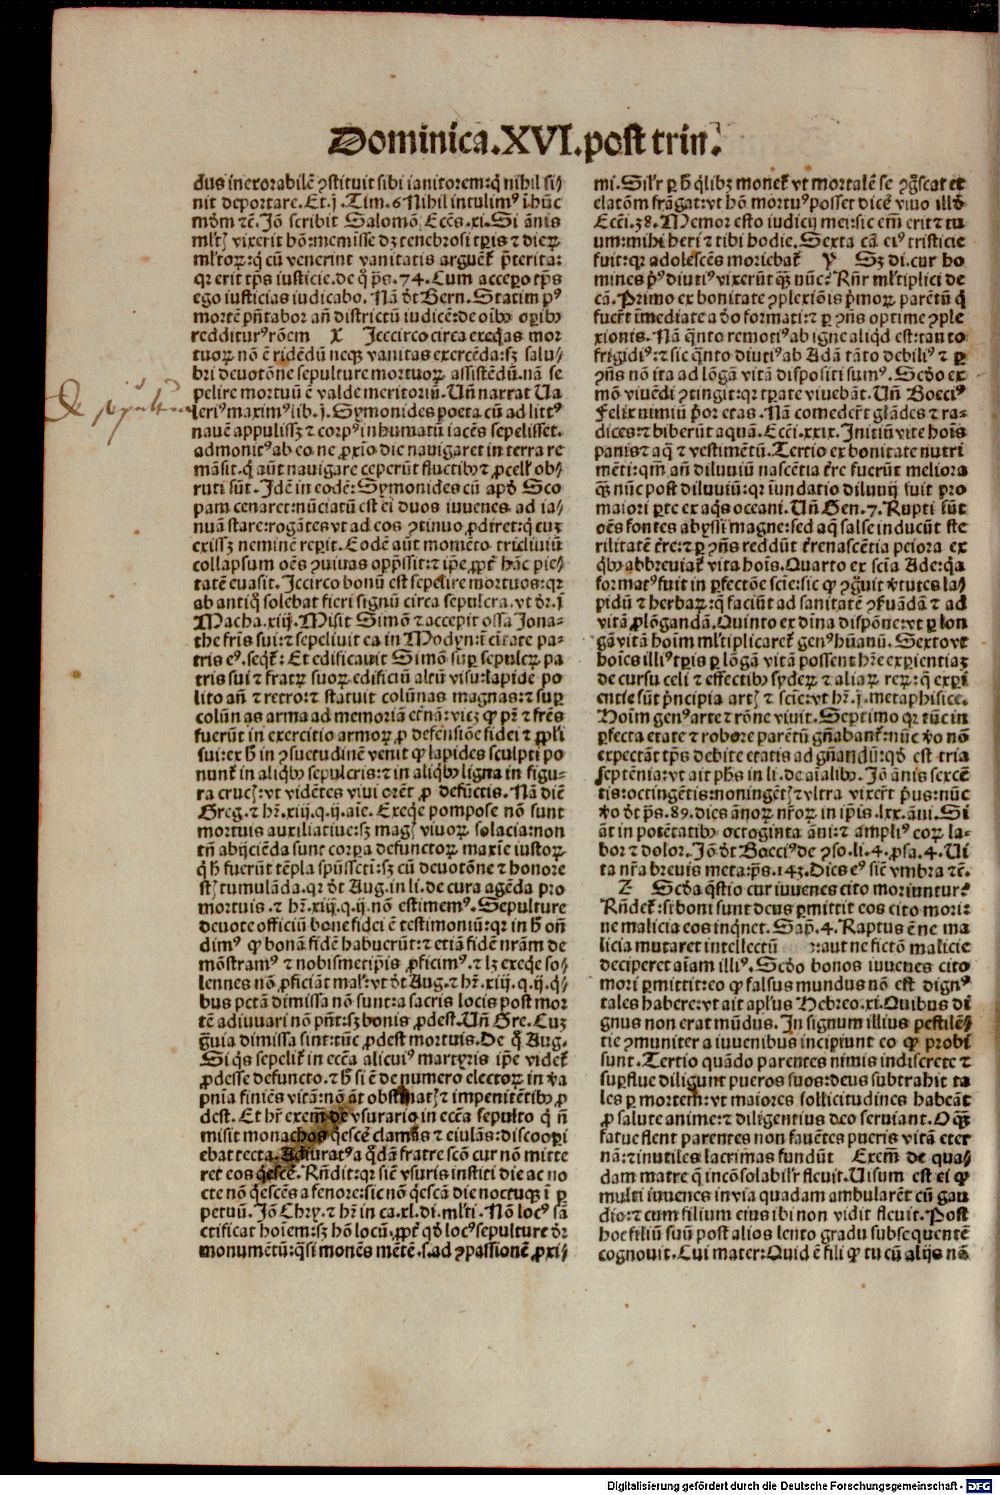 Dominica.XVI.post trin̄.
dus inexorabilē ꝯstituit sibi ianitorem:q̇ nihil si⸗
nit deportare. Et.j. Tim.6 Nihil intulimꝰ ī hūc
mūdm̄ ⁊c̄. Jō scribit Salomō Ecc̄s.xi. Si ānis
ml̓tꝭ vixerit hō:memisse dꝫ tenebrosi tꝑis ⁊ dieꝝ
ml̓toꝝ:q̄ cū venerint vanitatis arguēt̉ p̄terita:
qꝛ erit tp̄s iusticie.de q̊ p̄s.74. Cum accepo tp̄s
ego iusticias iudicabo. Nā d̓t Bern. Statim pꝰ
mortē pn̄tabor añ districtū iudicē:de oībꝰ oꝑibꝰ
redditurꝰ rōem X Jccirco circa exeq̄as mor
tuoꝝ nō ē ridēdū neqꝫ vanitas exercēda:sꝫ salu⸗
bri deuotōne sepulture mortuoꝝ assistēdū.nā se
De sepultura
pelire mortuū ē valde meritoriū. Uñ narrat Ua
leriꝰ maximꝰ lib.j. Symonides poeta cū ad littꝰ
nauē appulissꝫ ⁊ corpꝰ inhumatū iacēs sepelisset.
admonitꝰ ab eo ne ꝓxīo die nauigaret in terra re
māsit.q̇ aūt nauigare ceperūt fluctibꝰ ⁊ ꝓcell̓ ob⸗
ruti sūt. Jdē in eodē: Symonides cū apd̓ Sco
pam cenaret:nūciatū est ei duos iuuenes ad ia⸗
nuā stare:rogātes vt ad eos ꝯtinuo ꝓdiret:q̇ cuꝫ
exissꝫ neminē reꝑit. Eodē aūt momēto tricliuiū
collapsum oēs ꝯuiuas oppssit:⁊ ip̄e ꝓpt̓ hāc pie⸗
tatē euasit. Jccirco bonū est sepelire mortuos:qꝛ
ab antiq̊ solebat fieri signū circa sepulcra.vt d̓r.j
Macha.xiij. Misit Simō ⁊ accepit ossa Jona⸗
the fris̄ sui:⁊ sepeliuit ea in Modyn:ī ciuitate pa⸗
tris eꝰ.seq̇t̉: Et edificauit Simō sup̄ sepulcꝝ pa
tris sui ⁊ fratꝝ suoꝝ edificiū altū visu:lapide po
lito añ ⁊ retro:⁊ statuit colūnas magnas:⁊ suꝑ
colūnas arma ad memoriā etn̄ā:vicꝫ ꝙ pr̄ ⁊ fr̄es
fuerūt in exercitio armoꝝ ꝓ defensiōe fidei ⁊ ꝓpl̓i
sui:ex h̓ in ꝯsuetudinē venit ꝙ lapides sculpti po
nunt̉ in aliq̇bꝰ sepulcris:⁊ in aliq̇bꝰ ligna in figu⸗
ra crucꝭ:vt vidētes viui orēt ꝓ defūctis. Nā diē
Greg.⁊ hr̄.xiij.q.ij.aīe. Exeq̄e pompose nō sunt
mortuis auxiliatiue:sꝫ magꝭ viuoꝝ solacia:non
tn̄ abijciēda sunt corpa defunctoꝝ maxīe iustoꝝ
q̇ h̓ fuerūt tēpla spūssctī:sꝫ cū deuotōne ⁊ honore
st̄ tumulāda.qꝛ d̓t Aug.in li.de cura agēda pro
mortuis.⁊ hr̄.xiij.q.ij.nō estimemꝰ. Sepulture
deuote officiū bone fidei ē testimoniū:qꝛ in h̓ on̄
dimꝰ ꝙ bonā fidē habuerūt:⁊ etiā fidē nr̄am de
mōstramꝰ ⁊ nobismetip̄is ꝓficimꝰ.⁊ lꝫ exeq̄e so⸗
lennes nō ꝓficiāt mal̓:vt d̓t Aug.⁊ hr̄.xiij.q.ij.q̇⸗
bus petā dimissa nō sunt:a sacris locis post mor
tē adiuuari nō pn̄t:sꝫ bonis ꝓdest. Uñ Gre. Cuꝫ
gͣuia dimissa sint:tūc ꝓdest mortuis. De q̊ Aug.
Si q̇s sepelit̉ in ecc̄a alicuiꝰ martyris ip̄e videt̉
ꝓdesse defuncto.⁊ h̓ si ē de numero electoꝝ in va
pnia finiēs vitā:nō āt obstinatꝭ ⁊ impenitētibꝰ ꝓ
dest. Et hr̄ exem̄ de vsurario in ecc̄a sepulto q̇ n̄
misit monachos q̇escē clamās ⁊ eiulās:discoopi
ebat tecta. Adiuratꝰ a q̇dā fratre scō cur nō mitte
ret eos q̇escē. Rn̄dit:qꝛ sic̄ vsuris institi die ac no
cte nō q̇escēs a fenore:sic nō q̇escā die noctuqꝫ ī ꝑ
petuū. Jō Chry.⁊ hr̄ in ca.xl.di.ml̓ti. Nō locꝰ sā
ctificat hoīem:sꝫ hō locū.ꝓpt̓ qd̓ locꝰ sepulture d̓r
monumētū:q̇si monēs mētē.s.ad ꝯpassionē ꝓxi⸗
mi. Sil̓r ꝑ h̓ q̇libꝫ monet̉ vt mortalē se ꝯg̓scat et
elatōm frāgat:vt hōm mortuꝰ posset dicē viuo illd̓
Ecci.38. Memor esto iudicij mei:sic em̄ erit ⁊ tu
um:mihi heri ⁊ tibi hodie. Sexta cā eiꝰ tristicie
fuit:qꝛ adolescēs moriebat̉ Y Sꝫ di.cur ho
mines pͥꝰ diutiꝰ vixerūt qꝫ̄ nūc? Rn̄r ml̓tiplici de
cā. Primo ex bonitate ꝯplexiōis pͥmoꝝ parētū q̇
fuer̄t īmediate a d̓o formati:⁊ ꝑ ꝯn̄s optime ꝯple
xionis. Nā q̇nto remotiꝰ ab igne aliqd̓ est:tanto
frigidiꝰ:⁊ sic q̇nto diutiꝰ ab Adā tāto debiliꝰ ⁊ ꝑ
ꝯn̄s nō ita ad lōgā vitā dispositi sumꝰ. Sed̓o ex
mō viuēdi ꝯtingit:qꝛ tꝑate viuebāt. Uñ Boeciꝰ
Felix nimiū pͥor etas. Nā comeder̄t glādes ⁊ ra⸗
dices:⁊ biberūt aquā. Ecci.xxix. Jnitiū vite hoīs
panis ⁊ aq̄ ⁊ vestimētū. Tertio ex bonitate nutri
mēti:qm̄ añ diluuiū nascētia tr̄e fuerūt meliora
qꝫ̄ nūc post diluuiū:qꝛ iundatio diluuij fuit pro
maiori ꝑte ex aq̇s oceani. Uñ Gen.7. Rupti sūt
oēs fontes abyssi magne:sed aq̄ salse inducūt ste
rilitatē tr̄e:⁊ ꝑ ꝯn̄s reddūt tr̄enascētia peiora ex
q̇bꝰ abbreuiat̉ vita hoīs. Quarto ex scīa Ade:q̇a
formatꝰ fuit in ꝑfectōe scīe:sic ꝙ ꝯgͣuit v̓tutes la⸗
pidū ⁊ herbaꝝ:q̄ faciūt ad sanitatē ꝯẜuādā ⁊ ad
vitā ꝓlōgandā. Quinto ex dīna dispōne:vt ꝑ lon
gā vitā hoīm ml̓tiplicaret̉ genꝰ hūanū. Sexto vt
hoīes illiꝰ tꝑis ꝑ lōgā vitā possent hr̄e exꝑientiaꝫ
de cursu celi ⁊ effectibꝰ sydeꝝ ⁊ aliaꝝ reꝝ:q̄ exꝑi
entie sūt pͥncipia artꝭ ⁊ scīe:vt hr̄.j.metaphisice.
Hoīm genꝰ arte ⁊ rōne viuit. Septimo qꝛ tūc in
ꝑfecta etate ⁊ robore parētū gn̄abant̉:nūc v̓o nō
expectāt tp̄s debite etatis ad gn̄andū:qd̓ est tria
septēnia:vt ait ph̄s in li.de aīalibꝰ. Jō ānis sexcē
tis:octingētis:noningētꝭ ⁊ vltra vixer̄t pͥus:nūc
v̓o d̓t p̄s.89.dies ānoꝝ nr̄oꝝ in ip̄is.lxx.āni. Si
āt in potētatibꝰ octoginta āni:⁊ ampliꝰ eoꝝ la⸗
bor ⁊ dolor. Jō d̓t Boeciꝰ de ꝯso.li.4.ꝓsa.4. Ui
ta nr̄a breuis meta:p̄s.143. Dies eꝰ sic̄ vmbra ⁊c̄.
Z Scd̓a q̄stio cur iuuenes cito moriuntur?
Rn̄det̉:si boni sunt deus ꝑmittit eos cito mori:
ne malicia eos inq̇net. Sap̄.4. Raptus ē ne ma
licia mutaret intellectū :aut ne fictōm malicie
deciperet aīam illiꝰ. Scd̓o bonos iuuenes cito
mori ꝑmittit:eo ꝙ falsus mundus nō est dignꝰ
tales habere:vt ait apl̓us Hebreo.xi. Quibus di
gnus non erat mūdus. Jn signum illius pestilē⸗
tie ꝯmuniter a iuuenibus incipiunt eo ꝙ probi
sunt. Tertio quādo parentes nimis indiscrete ⁊
suꝑflue diligunt pueros suos:deus subtrahit ta
les ꝑ mortem:vt maiores sollicitudines habeāt
ꝓ salute anime:⁊ diligentius deo seruiant. O qꝫ̄
fatue flent parentes non fauētes pueris vitā eter
nā:⁊ inutiles lacrimas fundūt Exem̄ de qua⸗
dam matre q̄ incōsolabil̓r fleuit. Uisum est ei ꝙ
multi iuuenes in via quadam ambularēt cū gau
dio:⁊ cum filium eius ibi non vidit fleuit. Post
hoc filiū suū post alios lento gradu subsequentē
cognouit. Cui mater: Quid ē fili ꝙ tu cū alijs nō
Digitalisierung gefördert durch die Deutsche Forschungsgemeinschaft - DFG